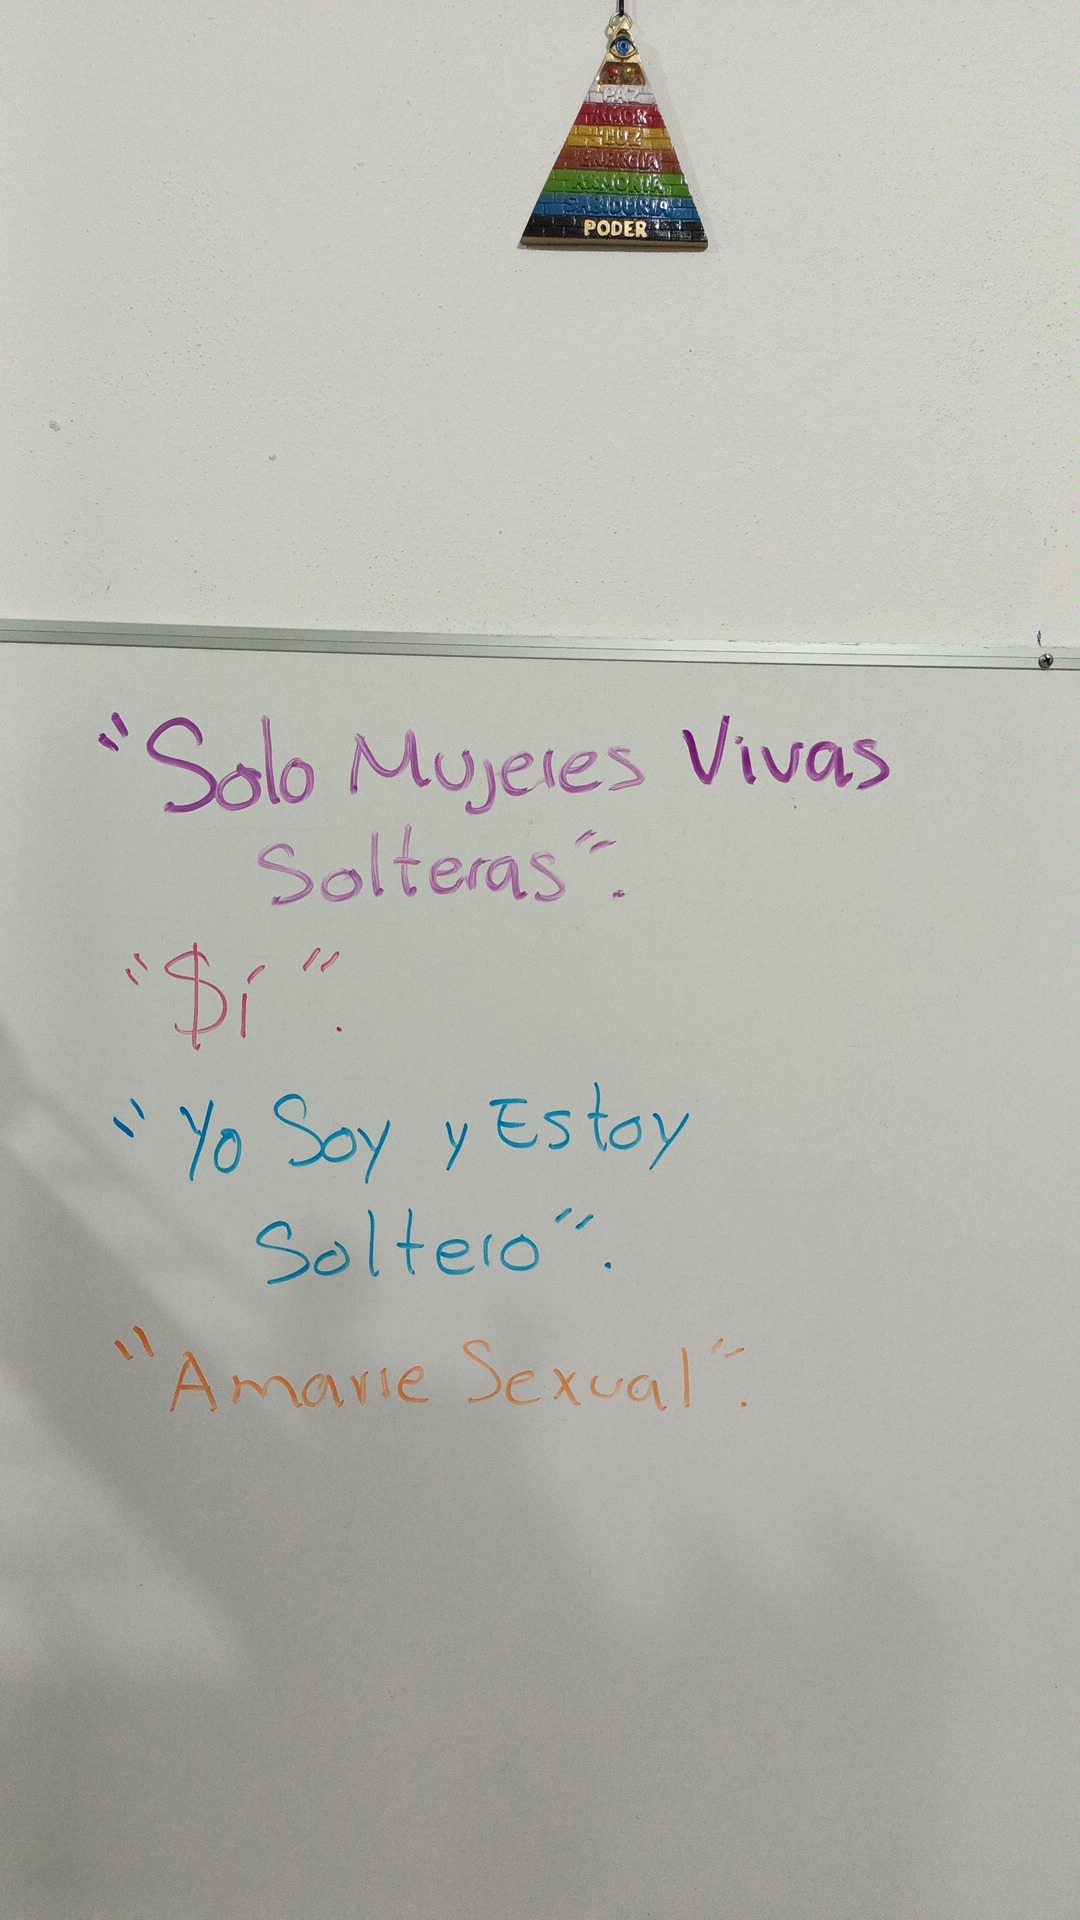 PAZ
AMOR
LUZ
ENERGIA
ARMONIA
SABIDURIA
PODER
"Solo Mujeres Vivas
Solteras".
"$í".
"Yo Soy y Estoy
Soltero".
"Amarre Sexual".